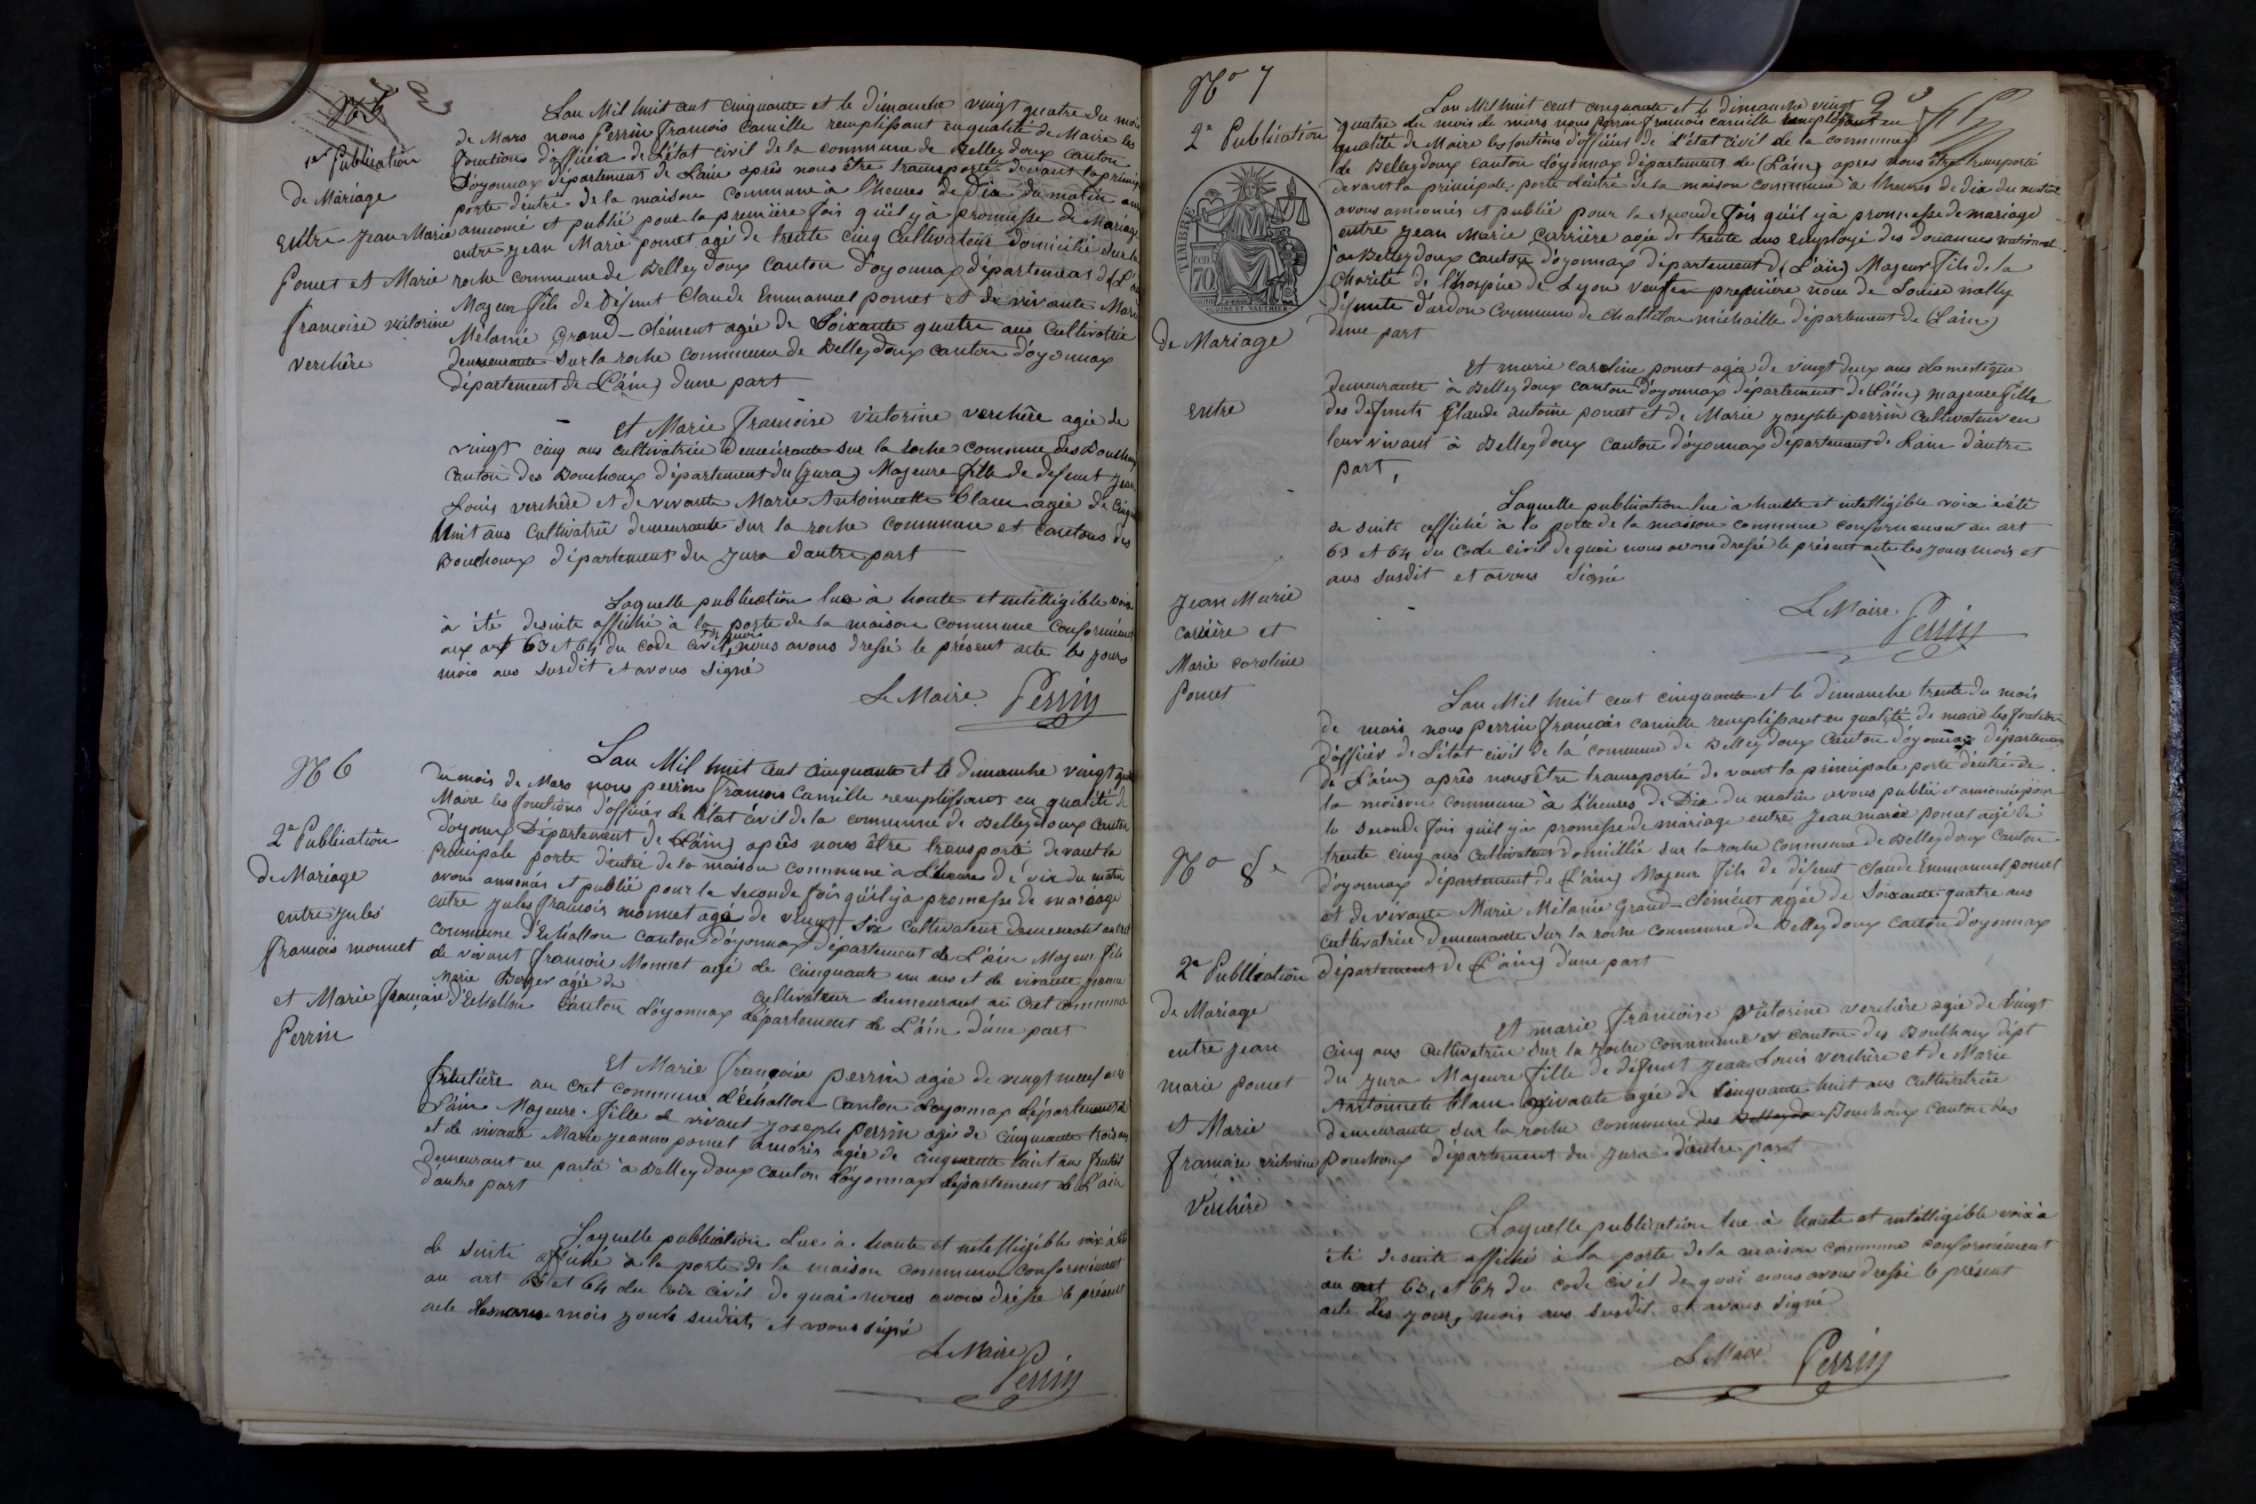 No 5
1re Publication
de Mariage
entre Jean Marie
Pomet et Marie
françoise victorine
verchère
L'an Mil huit cent cinquante et le dimanche vingt quatre du mois
de Mars nous Perrin françois camille remplissant en qualité de Maire les
fonctions d'officier de l'état civil de la commune de Belleydoux canton
d'oyonnax département de L'ain après nous être transporté devant la princip
porte d'entré de la maison commune à l'heures de Dix du matin avons
annoncé et publié pour la première fois qu'il y à promesse de Mariage
entre jean Marie pomet agé de trente cinq Cultivateur domicilié sur la
roche commune de Belleydoux canton d'oyonnax département de L'ain
Majeur fils de défunt Claude Emmanuel pomet et de vivante Marie
Mélanie Grand-clément agée de Soixante quatre ans Cultivatrice
demeurante sur la roche commune de Belleydoux canton d'oyonnax
département de (L'ain) d'une part
et Marie françoise victorine verchère agée de
vingt cinq ans cultivatrice demeurante sur la roche commune des Bouchoux
canton des Bouchoux département du (jura) Majeure fille de defunt jean
Louis verchère et de vivante Marie Antoinette blanc agée de cinq
huit ans cultivatrice demeurante sur la roche commune et cantons des
Bouchoux département du jura d'autre part
Laquelle publication lue à haute et intelligible voix
à été desuite affiché à la porte de la maison commune conformément
aux art 63 et 64 du code civil, de quoi nous avons dressé le présent acte les jours
mois ans susdit et avons signé
Le Maire Perrin
No 6
2e Publication
de Mariage
entre jules
françois monnet
et Marie françoise
Perrin
L'an Mil huit cent cinquante et le dimanche vingt quatre
du mois de Mars nous perrin françois camille remplissant en qualité de
Maire les fonctions d'officier de l'état civil de la commune de Belleydoux canton
d'oyonnax Département de (L'ain) après nous être transporté devant la
Principale porte d'entré de la maison commune à L'heures de dix du matin
avons annoncé et publié pour la seconde fois qu'il y à promesse de mariage
entre jules françois monnet agé de vingt six cultivateur demeurant au cret
commune d'Echallon canton d'oyonnax département de L'ain Majeur fils
de vivant françois Monnet agé de cinquante un ans et de vivante jeanne
Marie Berger agée de cultivateur demeurant au Cret commune
d'Echallon Canton d'oyonnax département de L'ain d'une part
et Marie françoise perrin agée de vingt neuf ans
fruitière au cret commune d'échallon canton d'oyonnax département de
L'ain Majeure fille de vivant Joseph perrin agé de cinquante trois ans
et de vivante Marie jeanne pomet agée de cinquante huit ans
demeurant en partie à Belleydoux canton d'oyonnax département de L'ain
d'autre part
Laquelle publication Lue à haute et intelligible voix à été
de suite affiché à la porte de la maison commune conformément
au art 63 et 64 du code civil de quoi nous avons dressé le présent
acte mois jours susdits et avons signé
Le Maire
Perrin
No 7
2e Publication
TIMBRE
70
de Mariage
entre
Jean Marie
carrière et
Marie caroline
Pomet
L'an Mil huit cent cinquante et le dimanche vingt
quatre du mois de mars nous perrin françois camille remplissant en
qualité de Maire les fontions d'officiers de l'état civil de la commune
de Belleydoux canton d'oyonnax département de (L'ain) apres nous être transporté
devant la principale porte d'entré de la maison commune à l'heures de dix du matin
avons annoncés et publié pour la seconde fois qu'il y à promesse de mariage
entre jean Marie carrière agée de trente ans employé des douannes national
à Belleydoux canton d'oyonnax département de (L'ain) Majeur fils de la
charité de l'hospice de Lyon veuf en première noce de Louise nally
défunte d'ardon commune de chatillon michaille département de (L'ain)
d'une part
et marie caroline pomet agée de vingt deux ans domestique
demeurante à Belleydoux canton d'oyonnax département de (L'ain) majeure fille
des defunts Claude antoine pomet et de Marie josephte perrin cultivateur en
leur vivant à Belleydoux canton d'oyonnax département de L'ain d'autre
part,
Laquelle publication lue à haute et intelligible voix à été
de suite affiché à la porte de la maison commune conformement au art
63 et 64 du code civil de quoi nous avons dressé le présent acte les jours mois et
ans susdit et avons signé
Le Maire
Perrin
No 8
2e Publication
de Mariage
entre jean
marie pomet
et Marie
françoise victorine
Verchère
L'an Mil huit cent cinquante et le dimanche trente du mois
de mars nous perrin françois camille remplissant en qualité de maire les fontions
d'officier de L'état civil de la commune de Belleydoux Canton d'oyonnax département
de (L'ain) après nous être transporté devant la principale porte d'entrée de
la maison commune à L'heures de Dix du matin avons publié et annoncée pour
la seconde fois qu'il y à promesse de mariage entre jean marie pomet agé de
trente cinq ans cultivateur domicillié sur la roche commune de Belleydoux canton
d'oyonnax département de (L'ain) Majeur fils de défunt claude Emmanuel pomet
et de vivante Marie Mélanie Grand-clément agée de Soixante quatre ans
cultivatrice demeurante sur la roche commune de Belleydoux canton d'oyonnax
département de (L'ain) d'une part
et marie françoise victorine verchère agée de vingt
cinq ans cultivatrice sur la roche commune et canton des Bouchoux dépt
du jura Majeure fille de défunt jean Louis verchère et de Marie
Antoinete blanc vivante agée de cinquante huit ans cultivatrice
demeurante sur la roche commune des Belleydo Bouchoux canton des
Bouchoux département du jura d'autre part
Laquelle publication lue à haute et intelligible voix à
été desuite affiché à la porte de la maison commune conformément
au art 63, et 64 du code civil de quoi nous avons dressé le présent
acte les jours, mois ans susdit et avons signé
Le Maire Perrin